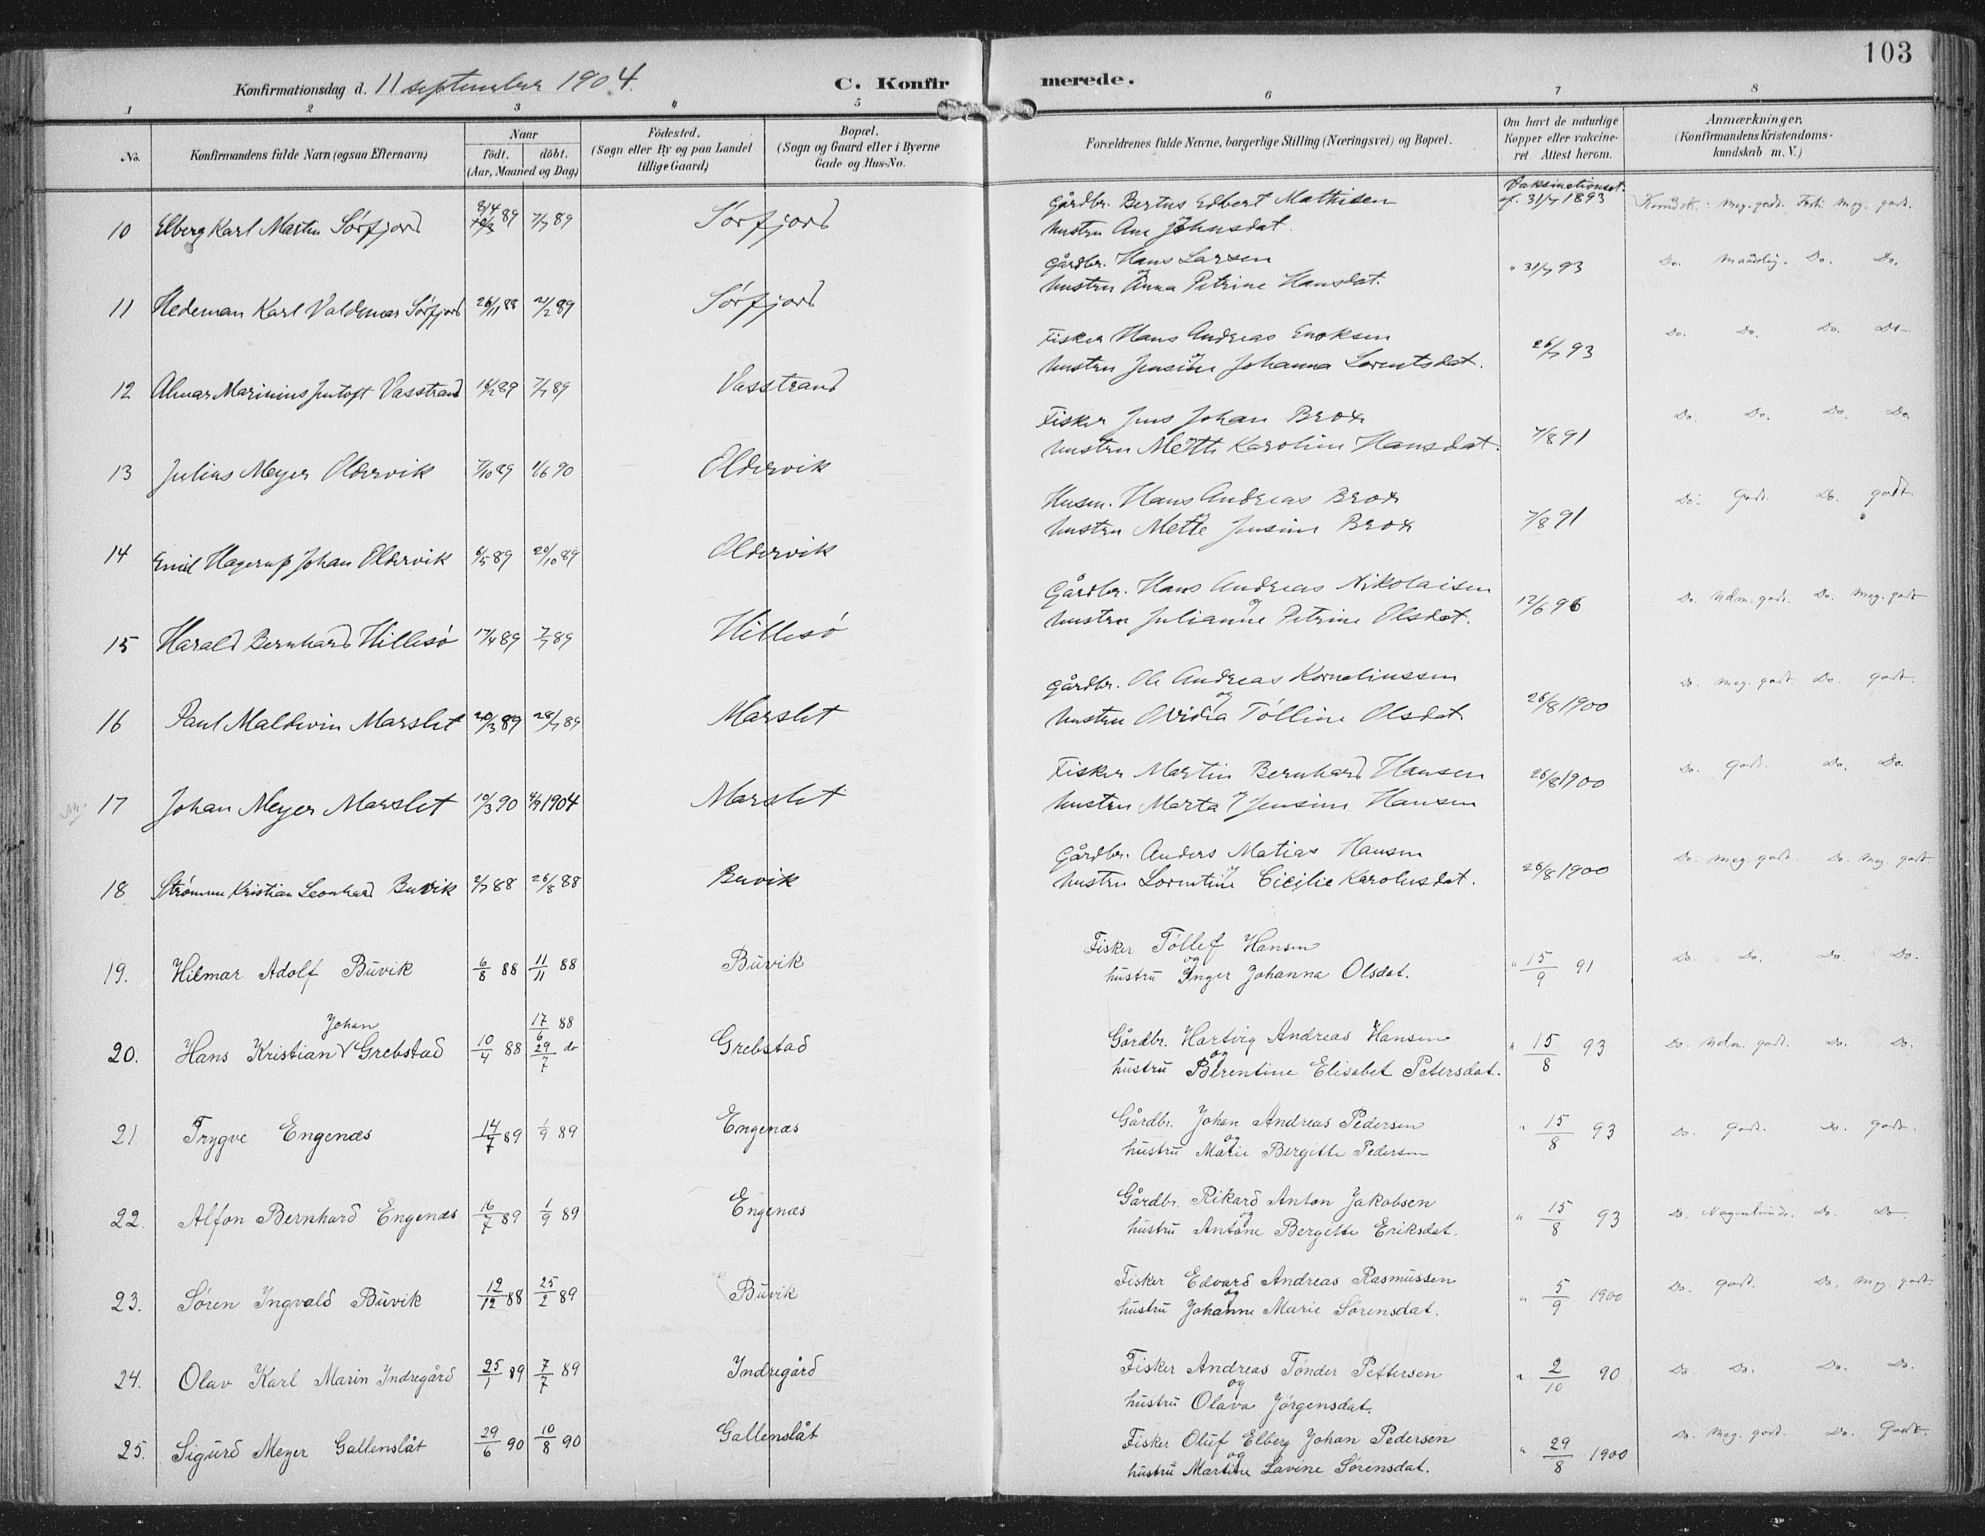 103
Konfirmationsdag d. 11 september 1904.
C. Konfirmerede.
1 2 3 4 5 6 7 8
No.
Konfirmandens fulde Navn (ogsaa Efternavn)
Naar
født. døbt.
(Aar, Maaned og Dag)
Fødested.
(Sogn eller By og paa Landet
tillige Gaard)
Bopæl.
(Sogn og Gaard eller i Byerne
Gade og Hus-No.
Forældrenes fulde Navne, borgerlige Stilling (Næringsvei) og Bopæl.
Om havt de naturlige
Kopper eller vakcine-
ret Attest herom.
Anmærkninger.
(Konfirmandens Kristendoms-
kundskab m. V.)
10 Elberg Karl Martin Sörfjord 8/4 89 7/7 89 Sörfjord
Gårdbr. Bertus Edbert Mathisen
hustru Ane Johnsdat.
Vaksinationsat. af 31/7 1893
meg. godt. meg. godt.
11 Hedeman Karl Valdemar Sörfjord 26/11 88 2/2 89 Sörfjord
Gårdbr. Hans Larsen
og
hustru Anna Petrine Hansdat.
" 31/7 93
Do. Do. Do.
12 Almar Marinius Jentoft Vasstrand 16/2 89 7/7 89 Vasstrand
Fisker Hans Andreas Enoksen
og
hustru Jensine Johanna Lorentsdat.
26/7 93
Do. Do. Do. Do
13 Julius Meyer Oldervik 7/10 89 1/6 90 Oldervik
Fisker Jens Johan Brox
hustru Mette Karoline Hansdat.
7/8 91
Do. Do. Do. Do.
14 Emil Hagerup Johan Oldervik 6/5 89 20/10 89 Oldervik
Husm. Hans Andreas Brox
og
hustru Mette Jensine Brox
7/8 91
Do. Godt. Do. godt.
15 Harald Bernhard Hillesö 17/4 89 7/7 89 Hillesö
Gårdbr. Hans Andreas Nikolaisen
og
hustru Julianne Petrine Olsdat.
12/6 96
Do. Udm. godt. Do. Meg. godt
16 Paul Maldevin Marslet 20/3 89 28/7 89 Marslet
Gårdbr. Ole Andreas Korneliussen
og
hustru Ovidia Tölline Olsdat
26/8 1900
Do. meg. godt. Do. godt.
17 Johan Meyer Marslet 10/3 90 4/9 1904 Marslet
Fisker Martin Bernhard Hansen
og
hustru Marta Jensine Hansen
26/8 1900
Do. godt. Do. Do.
18 Strömme Kristian Leonhard Buvik 2/7 88 26/8 88 Buvik
Gårdbr. Anders Matias Hansen
og
hustru Lorentine Cicilie Karolusdat.
26/8 1900
Do. meg. godt. Do. Meg. godt
19. Hilmar Adolf Buvik 6/8 88 11/11 88 Buvik
Fisker Töllef Hansen
og
hustru Inger Johanna Olsdat.
" 15/9 91
Do. Do. Do. Do.
20. Hans Kristian Johan Grebstad 10/4 88 17/6 88 29/7 do Grebstad
Gårdbr. Hartvig Andreas Hansen
og
hustru Berentine Elisabet Petersdat.
" 15/8 93
Do. Udm. godt. Do. Do.
21. Trygve Engenæs 14/7 89 1/9 89 Engenæs
Gårdbr. Johan Andreas Pedersen
og
hustru Marie Bergitte Pedersen
" 15/8 93
Do. godt. Do. godt.
22. Alfon Bernhard Engenæs 16/7 89 1/9 89 Engenæs
Gårdbr. Rikard Anton Jakobsen
og
hustru Antone Bergitte Eriksdat.
" 15/8 93
Do. Nogenlunde. Do. Do
23. Sören Ingvald Buvik 12/12 88 25/2 89 Buvik
Fisker Edvard Andreas Rasmussen
og
hustru Johanne Marie Sörensdat.
" 5/9 1900
Do. godt. Do. Meg. godt.
24. Olav Karl Marin Indregård 25/1 89 7/7 89 Indregård
Fisker Andreas Tönder Pettersen
og
hustru Olava Jörgensdat.
" 2/10 90
Do. Do. Do. Do.
25. Sigurd Meyer Gallenslåt 29/6 90 10/8 90 Gallenslåt
Fisker Oluf Elberg Johan Pedersen
og
hustru Martine Lavine Sörensdat.
" 29/8 1900
Do. Meg. godt. Do. Godt.